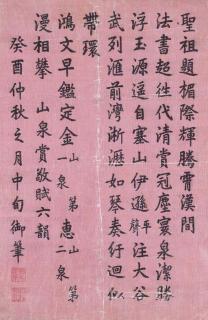 聖祖題楣際輝騰霄漢間
法書超往代清賞冠塵寰泉潔勝
浮玉源遙自塞山伊遜平聲注大谷
武列匯前灣淅瀝如琴奏紆迴似
帶環
鴻文早鑑定金山第一泉惠山第二泉
漫相攀 山泉賞敬賦六韻
癸酉仲秋之月中旬御筆